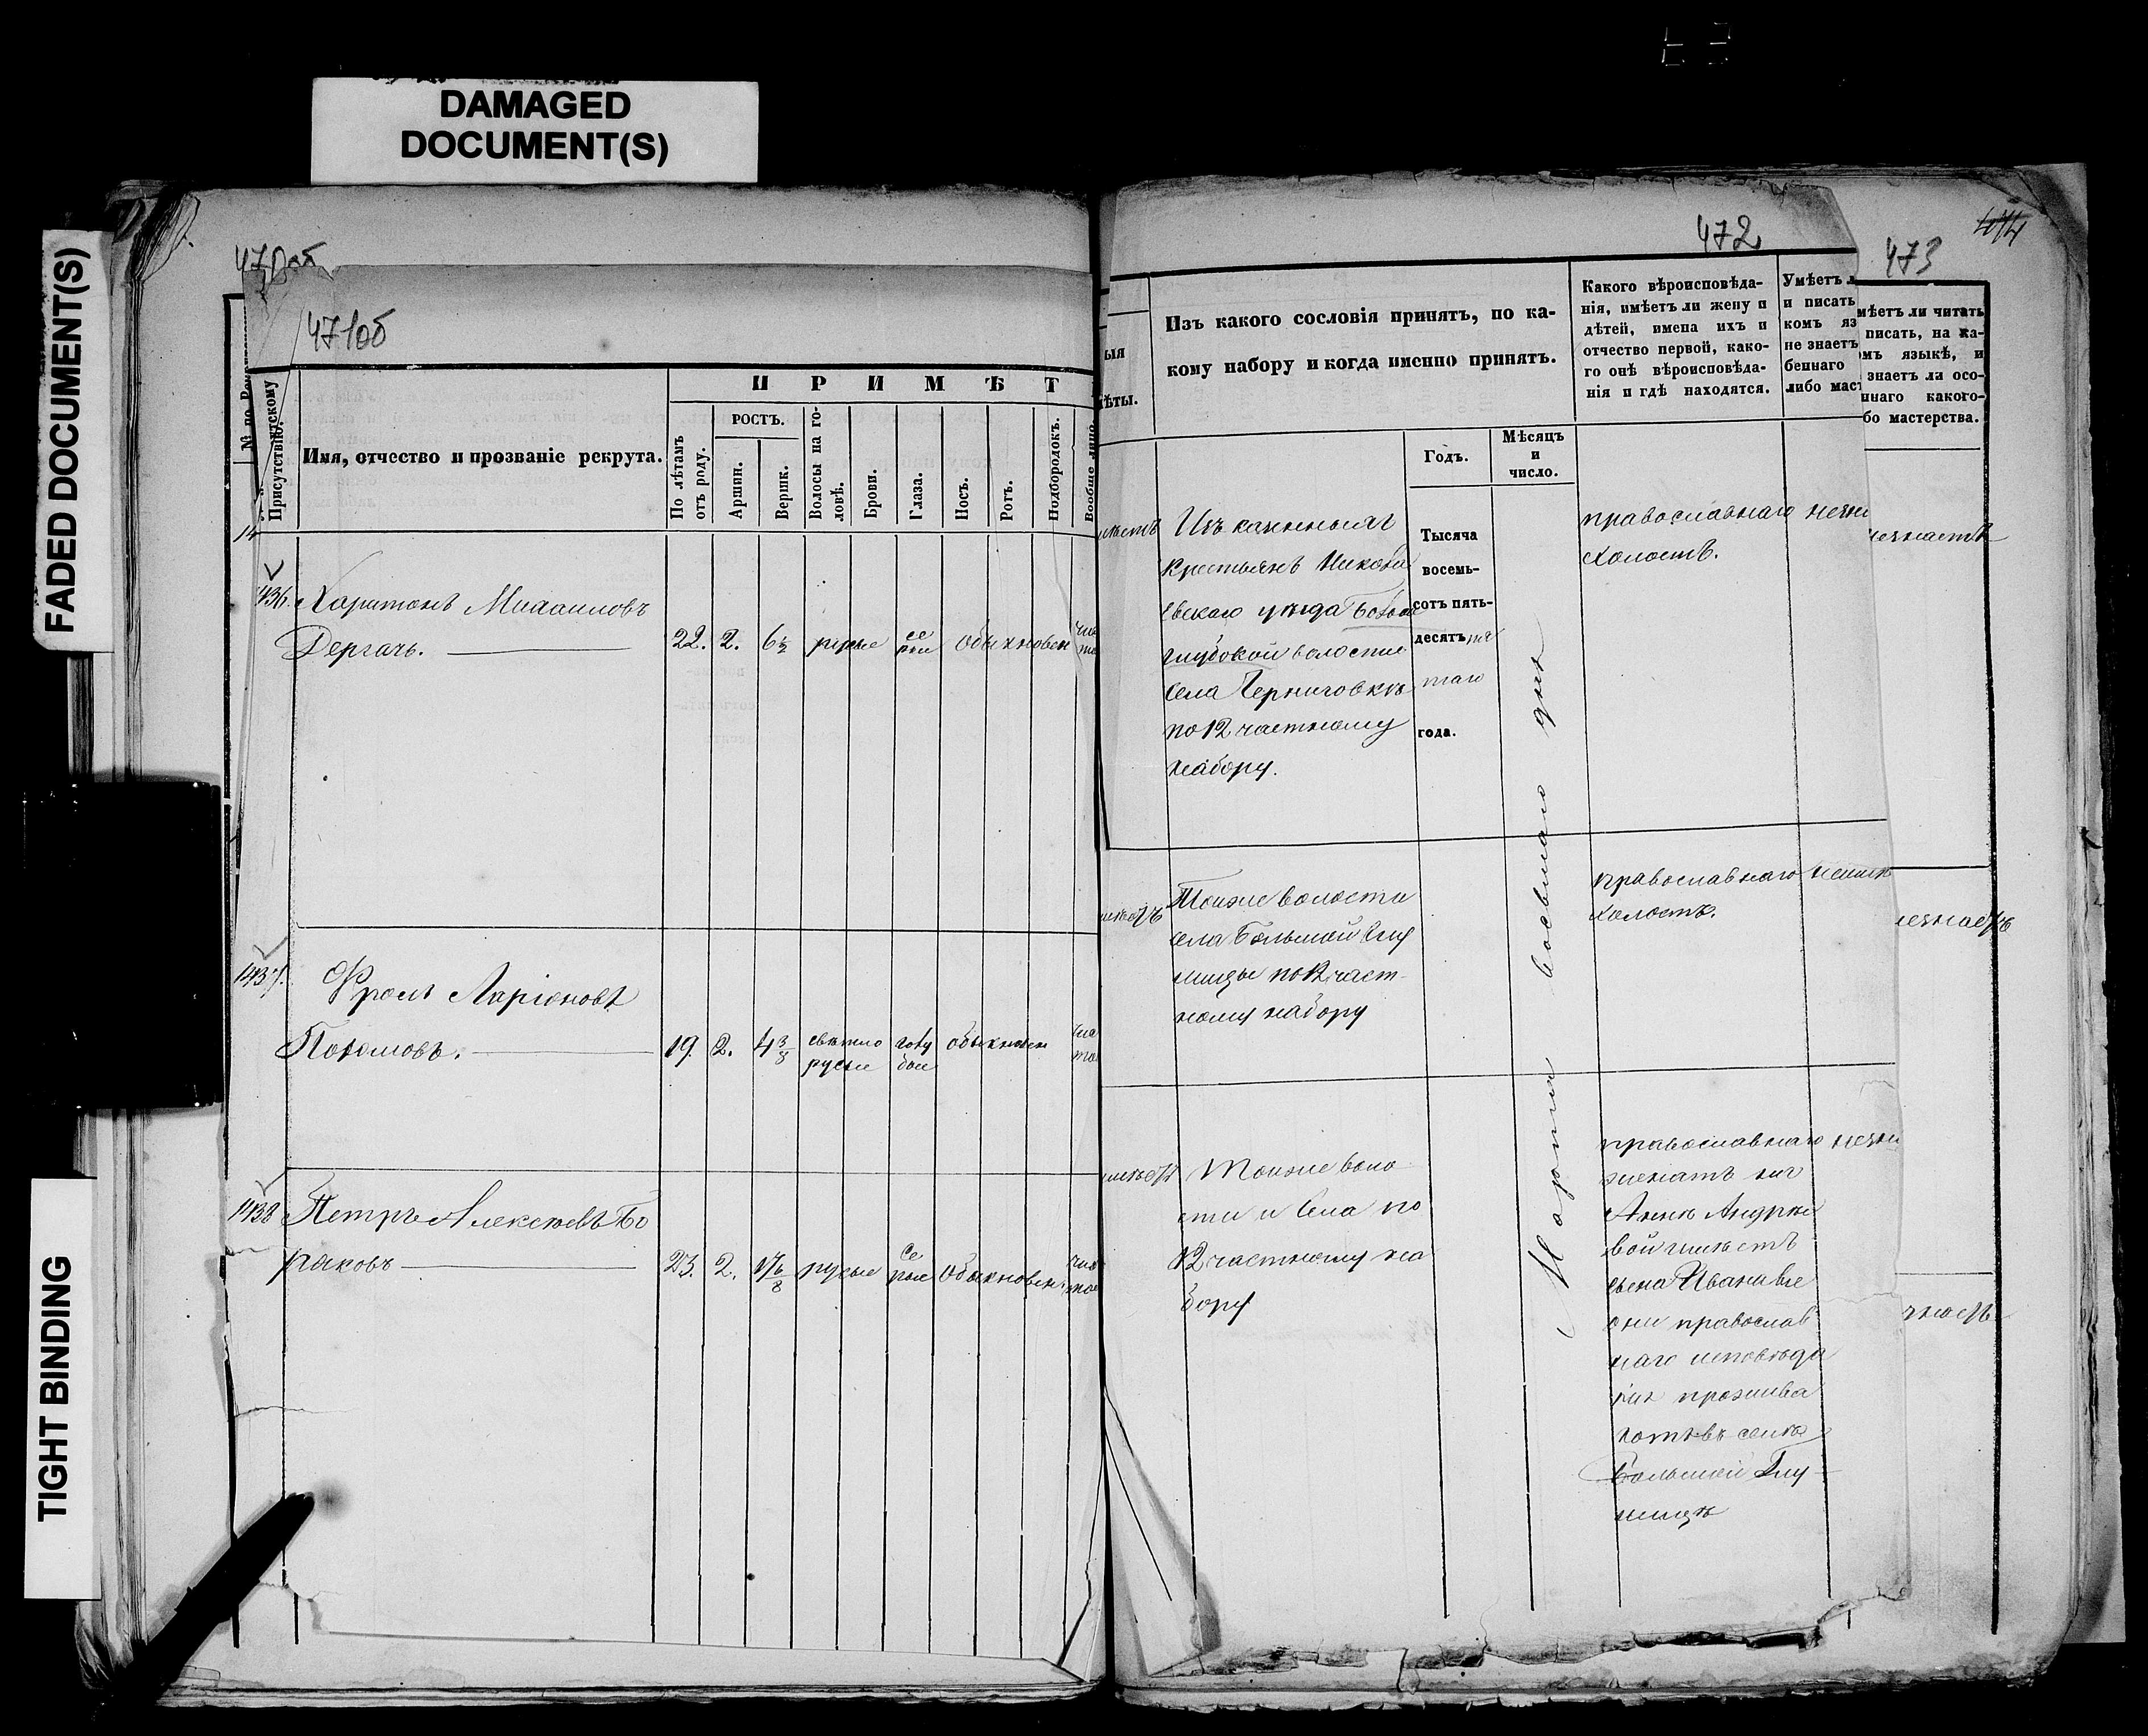 DAMAGED
DOCUMENT(S)
FADED DOCUMENT(S)
TIGHT BINDING
471об
Присутствію.
Имя, отчество и прозваніе рекрута.
П Р И М Ѣ Т
По лѣтамъ
отъ роду.
РОСТЪ.
Аршин.
Вершк.
Волосы на го-
ловѣ.
Брови.
Глаза.
Носъ.
Ротъ.
Подбородокъ.
Вообще лицо.
Харитонъ Михаиловъ
Дергачь.
22. 2. 6½ русые се
рые обыкновен чис
то
1437.
Фролъ Ларіоновъ
19. 2. 4 3/8 свѣтло
русые голу
бые обыкновен чис
то
1438 Петръ Алексѣевъ Бо
раковъ
23. 2. русые се
рые обыкновен чис
тое
472
473
474
ыя
мѣты.
Изъ какого сословія принятъ, по ка-
кому набору и когда именно принятъ.
Какого вѣроисповѣда-
нія, имѣетъ ли жену и
дѣтей, имена ихъ и
отчество первой, како-
го онѣ вѣроисповѣда-
нія и гдѣ находятся.
Умѣетъ л
и писать
комъ яз
не знаетъ
беннаго
либо маст
мѣетъ ли читать
писать, на ка-
мъ языкѣ, и
знаетъ ли осо-
ннаго какого-
бо мастерства.
Годъ.
Мѣсяцъ
и
число.
Изъ казенныхъ
крестьянъ Никола
евскаго уѣзда Больше
глубокой волости
села Черниговки
по 12 частному
набору.
Тысяча
восемь-
сотъ пять-
десятъ пя
таго
года.
Марта восьмаго дня
православнаго
холостъ.
незнаетъ
Тойже волости
села Большой Глу
шицы по 12 част-
ному набору
православнаго
холостъ.
незнаетъ
Тойже воло
сти и села по
12 частному на
бору
православнаго
женатъ на
Аннѣ Андрѣе
вой имѣетъ
сына Ивана всѣ
они православ
наго исповѣда
нія прожива
ютъ въ селѣ
Большой Глу-
шицѣ
знаетъ